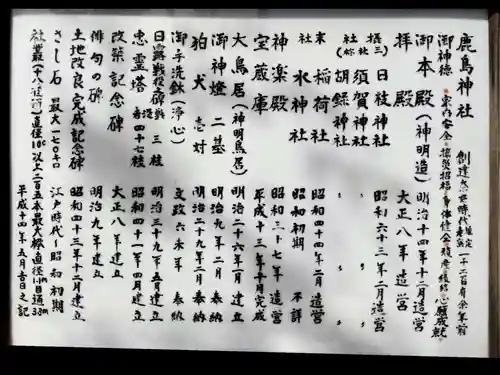 鹿島神社 創建 奈良時代推定 一千二百有余年前
御神徳 家内安全 災招福 身体健全 心願成就
御本殿(神明造) 明治十四年十二月造営
拝殿 大正八年造営
摂社(三社) 日枝神社 昭和六十三年二月造営
須賀神社 〃
胡録神社 〃
末社 稲荷社 昭和四十四年二月造営
水神社 昭和初期 不詳
神楽殿 昭和三十七年造営
宝蔵庫 平成十三年十月完成
大鳥居(神明鳥居) 明治二十六年一月建立
御神燈 二基 明治九年二月奉納
狛犬 壱対 明治二十九年二月奉納
御手洗鉢(浄心) 文政六未年 奉納
日露戦役之碑 三柱 明治三十九年五月建立
忠霊塔 四十七柱 昭和四十一年四月建立
改築記念碑 大正八年建立
俳句の碑 明治九年建立
土地改良完成記念碑 昭和四十三年十二月建立
さし石 最大一七〇キロ 江戸時代~昭和初期
社叢 直径10㎝以上二百五本最大樹直径1.1m目通3.3m
平成十四年五月吉日之記